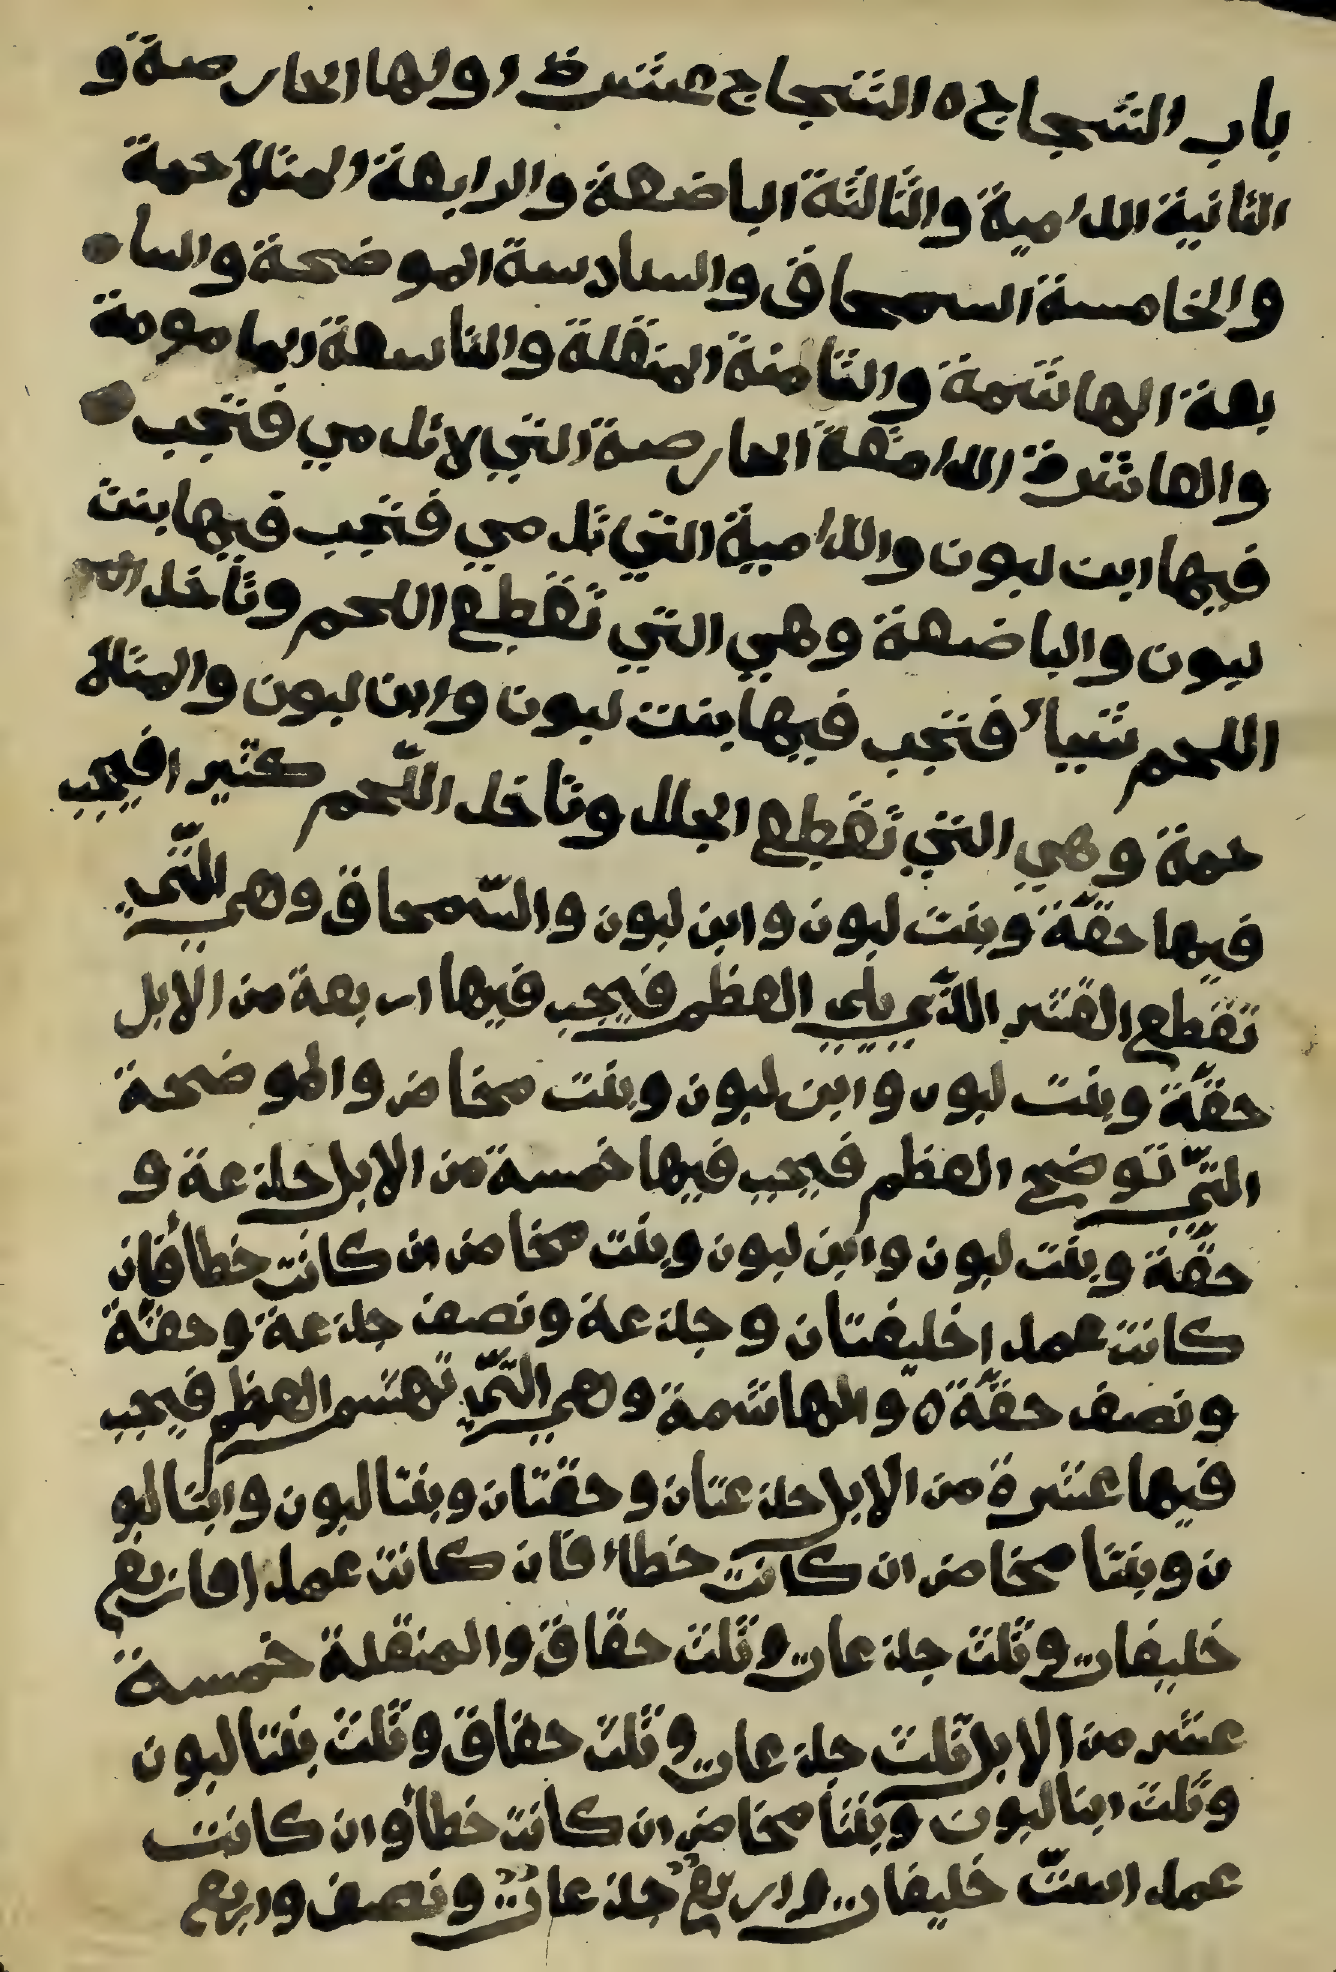 باب الشجاج ه الشجاج عشرة اولها الحارصة و
الثانية الدامية والثالثة الباضعة والرابعة المتلاحمة
والخامسة السمحاق والسادسة الموضحة والسا
بعة الهاشمة والثامنة المنقلة والتاسعة المامومة
والعاشرة الدامغة الحارصة التي لا تدمي فتجب
فيها ابن لبون والدامية التي تدمي فتجب فيها بنت
لبون والباضعة وهي التي تقطع اللحم وتأخذ
اللحم شيئا فتجب فيها بنت لبون وابن لبون والمتلا
حمة وهي التي تقطع الجلد وتأخذ اللّحم كثيرا فيجب
فيها حقّة وبنت لبون وابن لبون والسّمحاق وهي الّتي
تقطع القشر الذّي يلي العظم فيجب فيها اربعة من الابل
حقّة وبنت لبون وابن لبون وبنت مخاض والموضحة
التّي توضح العظم فيجب فيها خمسة من الابل جذعة و
حقّة وبنت لبون وابن لبون وبنت مخاض ان كانت خطأ فان
كانت عمدا خليفتان وجذعة ونصف جذعة وحقّة
ونصف حقّة ه والهاشمة وهي التّي تهشم العظم فيجب
فيها عشرة من الابل جذعتان وحقتان وبنتا لبون وابنا لبو
ن وبنتا مخاض ان كانت خطاء فان كانت عمدا فاربع
خليفات وثلث جذعات وثلث حقاق والمنقلة خمسة
عشر من الابل ثلث جذعات وثلث حقاق وثلث بنتا لبون
وثلث ابنا لبون وبنتا مخاض ان كانت خطأ وان كانت
عمدا ستّ خليفات واربع جذعات ونصف واربع